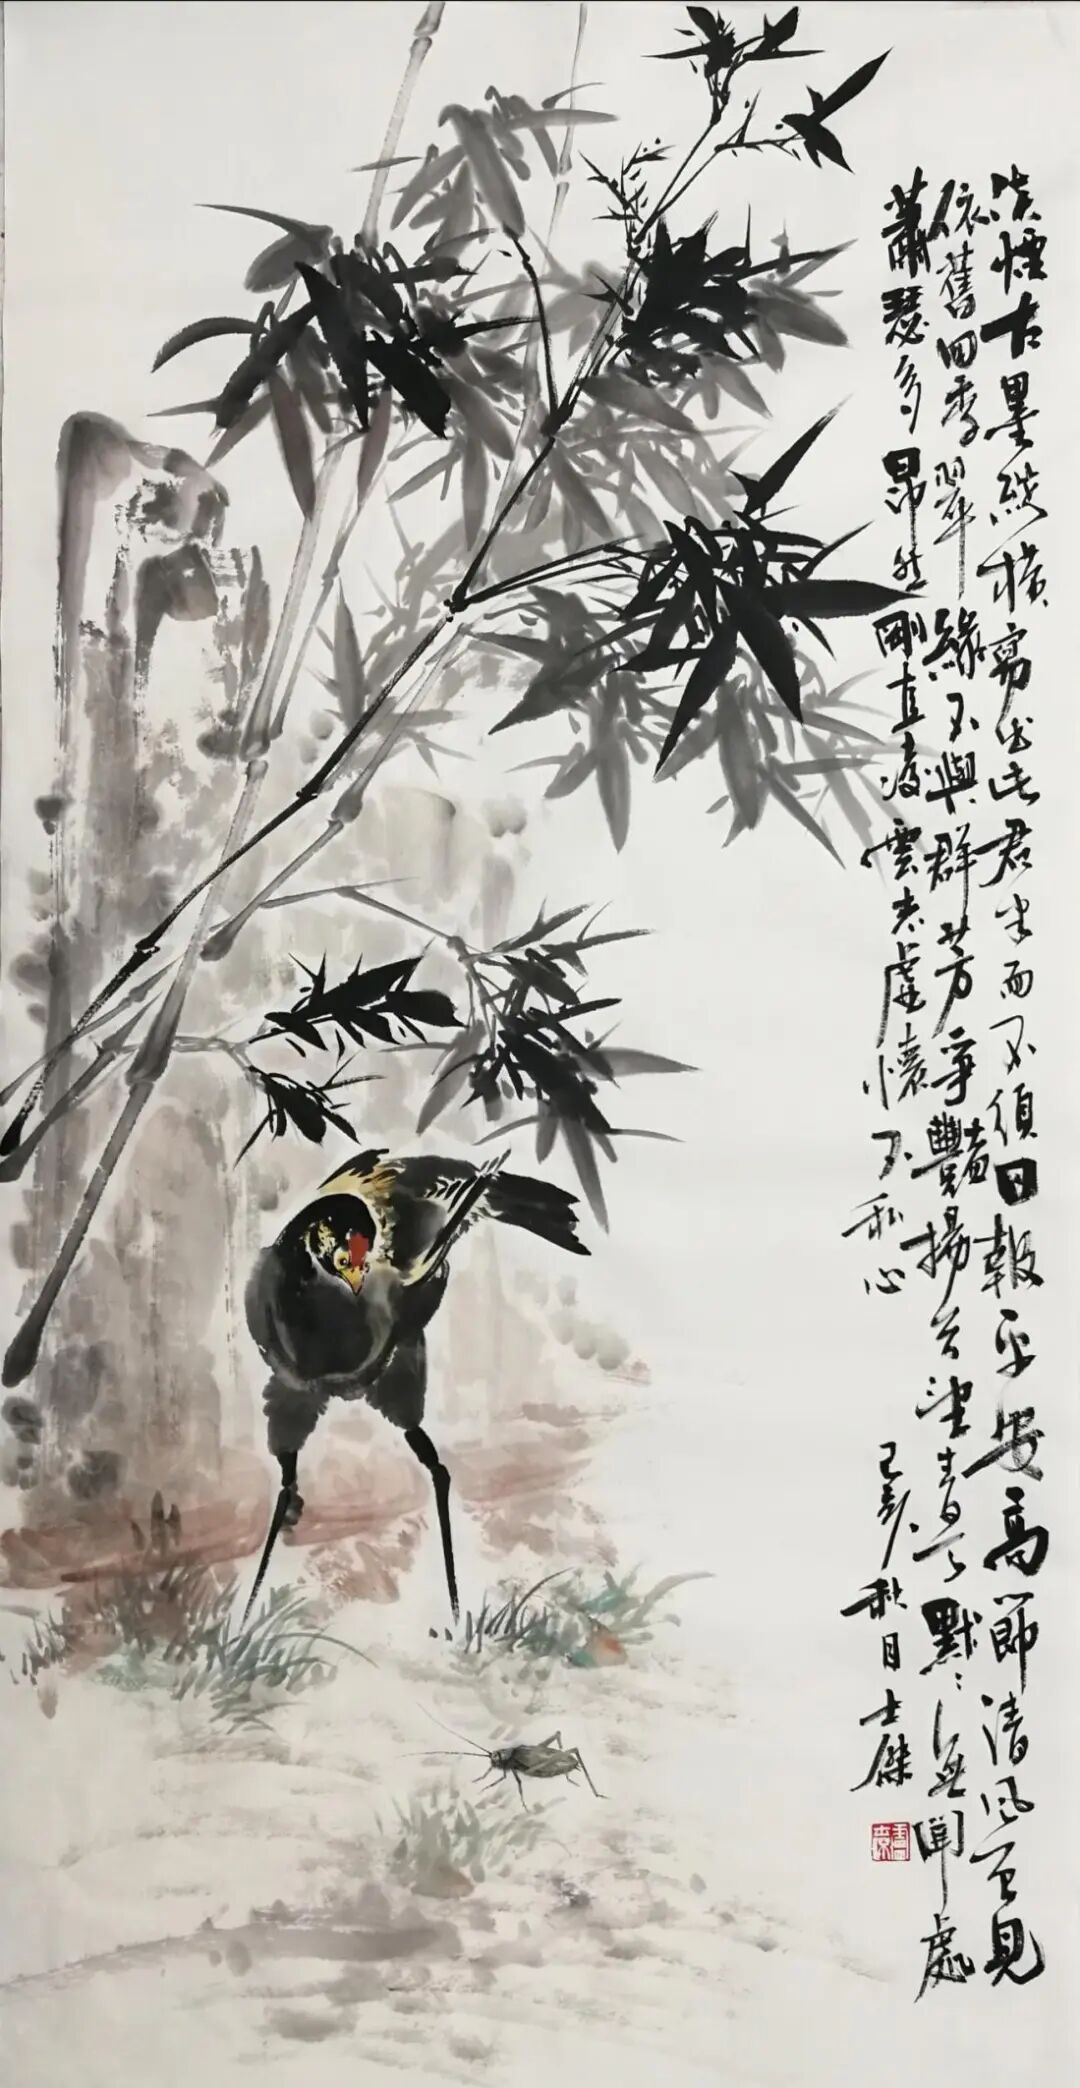 淡煙古墨縱橫寫出此君半面不須日報平安高節清風曾見
依舊四季翠綠不與群芳爭艷揚首望青雲默〻無聞處
蕭瑟多昂然剛直凌雲志虛懷不私心
己亥秋月士傑